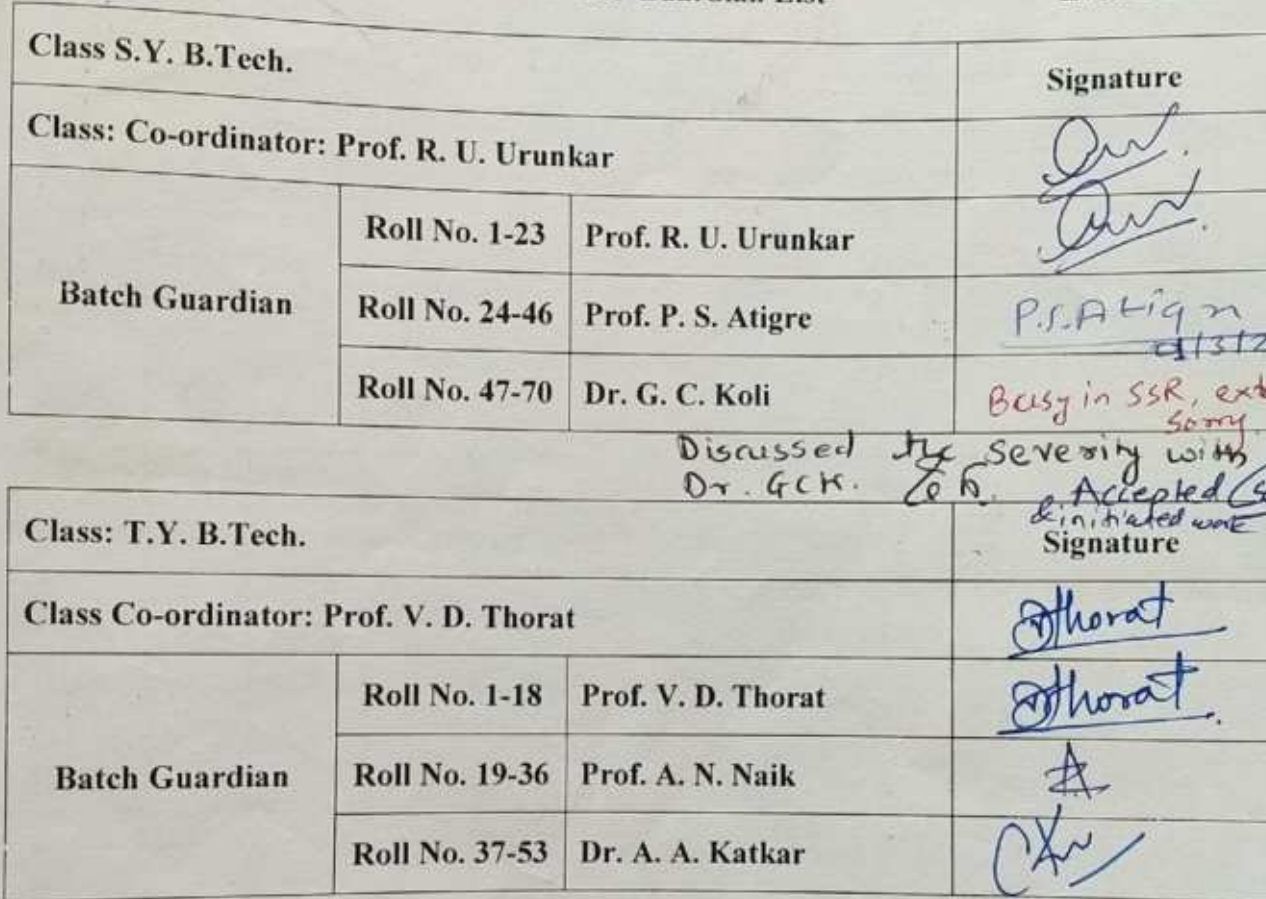 List
Class S.Y. B.Tech.
Signature
Class: Co-ordinator: Prof. R. U. Urunkar
Roll No. 1-23 Prof. R. U. Urunkar
Batch Guardian
Roll No. 24-46 Prof. P. S. Atigre
P.S.Atigre
Roll No. 47-70 Dr. G. C. Koli
Busy in SSR,
sorry
Discussed the severity with
Dr. GCK.
Accepted
& initiated work
Class: T.Y. B.Tech.
Signature
Class Co-ordinator: Prof. V. D. Thorat
Thorat
Roll No. 1-18 Prof. V. D. Thorat
Thorat
Batch Guardian
Roll No. 19-36 Prof. A. N. Naik
Roll No. 37-53 Dr. A. A. Katkar